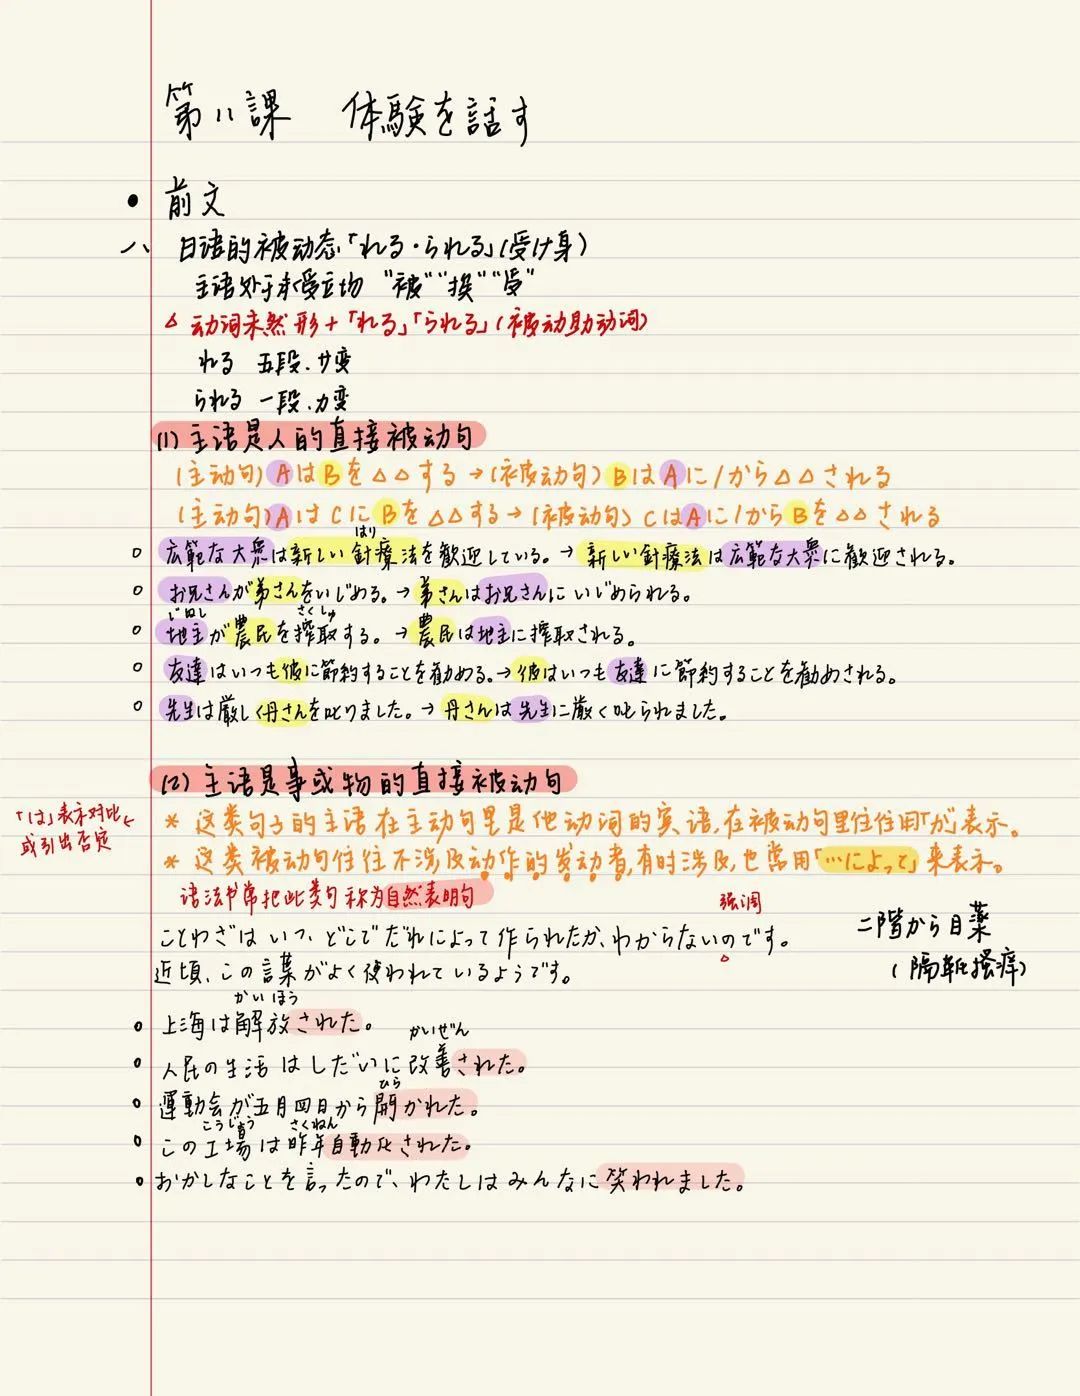 第八課 体験を話す
• 前文
一、日语的被动态「れる・られる」(受け身)
主语处于承受立场 "被""挨""受"
△ 动词未然形+「れる」「られる」(被动助动词)
れる 五段、サ变
られる 一段、カ变
(1) 主语是人的直接被动句
(主动句) AはBを△△する→(被动句) BはAに/から△△される
(主动句) AはCにBを△△する→(被动句) CはAに/からBを△△される
はり
○ 広範な大衆は新しい針療法を歓迎している。→ 新しい針療法は広範な大衆に歓迎される。
○ お兄さんが弟さんをいじめる。→弟さんはお兄さんにいじめられる。
じぬし さくしゅ
○ 地主が農民を搾取する。→農民は地主に搾取される。
○ 友達はいつも彼に節約することを勧める。→彼はいつも友達に節約することを勧めされる。
○ 先生は厳しく丹さんを叱りました。→ 丹さんは先生に厳く叱られました。
(2) 主语是事或物的直接被动句
「は」表示对比
或引出否定
* 这类句子的主语在主动句里是他动词的宾语,在被动句里往往用「が」表示。
* 这类被动句往往不涉及动作的发动者,有时涉及,也常用「…によって」来表示。
语法书常把此类句称为自然表明句
强调
ことわざはいつ、どこでだれによって作られたか、わからないのです。
近頃、この言葉がよく使われているようです。
二階から目薬
(隔靴搔痒)
かいほう
○ 上海は解放された。
かいぜん
○ 人民の生活はしだいに改善された。
ひら
○ 運動会が五月四日から開かれた。
こうじょう さくねん
○ この工場は昨年自動化された。
○ おかしなことを言ったので、わたしはみんなに笑われました。